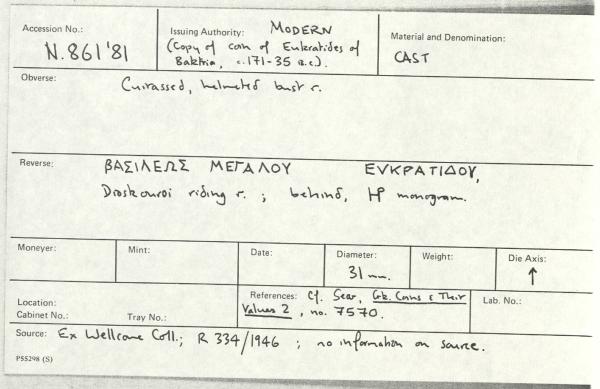 Accession No.:
N.861'81
Issuing Authority: MODERN
(Copy of coin of Eukratides of
Baktria, c.171-35 B.C.).
Material and Denomination:
CAST
Obverse:
Cuirassed, helmeted bust r.
Reverse: ΒΑΣΙΛΕΩΣ ΜΕΓΑΛΟΥ ΕΥΚΡΑΤΙΔΟΥ,
Dioskouroi riding r. ; behind, monogram.
Moneyer:
Mint:
Date:
Diameter:
31 mm.
Weight:
Die Axis:
↑
Location:
Cabinet No.: Tray No.:
References: Cf. Sear, Grk. Coins & Their
Values 2, no. 7570.
Lab. No.:
Source: Ex Wellcome Coll.; R 334/1946 ; no information on source.
P55298 (S)